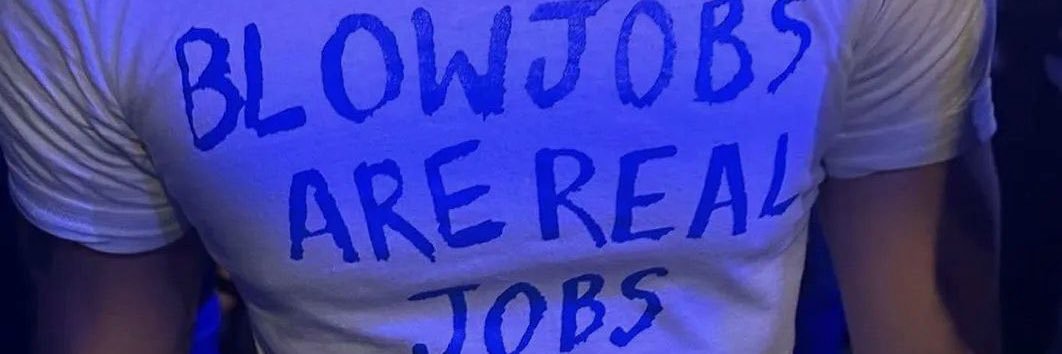 BLOWJOBS
ARE REAL
JOBS